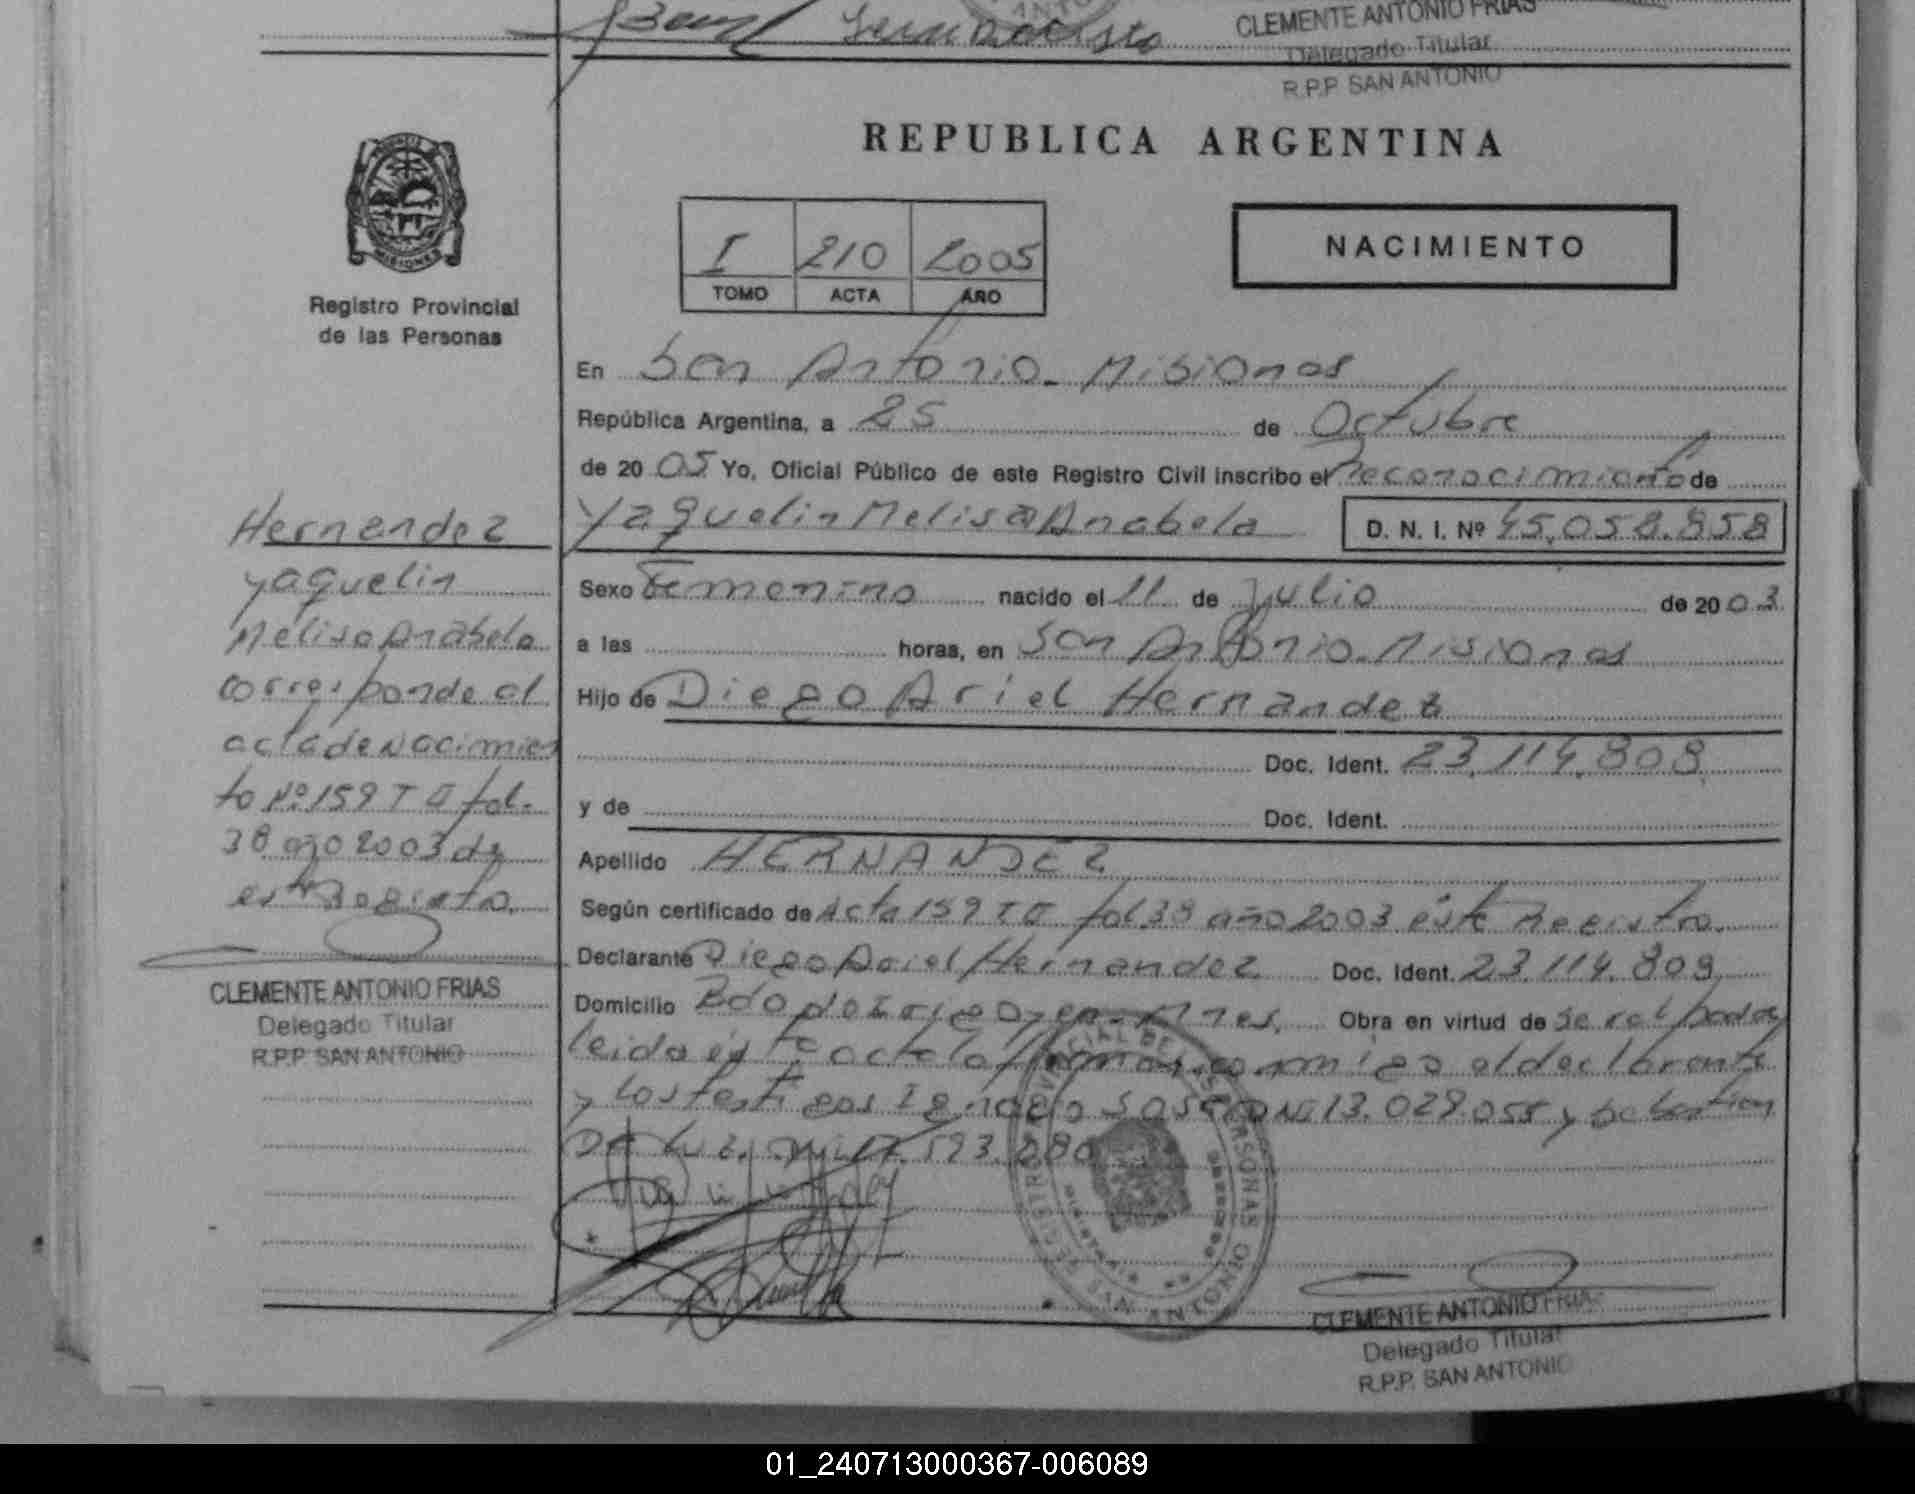 CLEMENTE ANTONIO FRIAS
Delegado Titular
R.P.P. SAN ANTONIO
REPUBLICA ARGENTINA
MISIONES
Registro Provincial
de las Personas
I 210 2005
TOMO ACTA AÑO
NACIMIENTO
En San Antonio - Misiones
República Argentina, a 25 de Octubre
de 2005 Yo, Oficial Público de este Registro Civil inscribo el Reconocimiento de
Yaquelin Melisa Anabela D. N. I. Nº 45.058.858
Sexo Femenino nacido el 11 de Julio de 2003
a las horas, en San Antonio - Misiones
Hijo de Diego Ariel Hernandez
Doc. Ident. 23.114.808
y de Doc. Ident.
Apellido HERNANDEZ
Según certificado de Acta 159 T II fol 38 año 2003 éste Registro.
Declarante Diego Ariel Hernandez Doc. Ident. 23.114.808
Domicilio Bdo de Irigoyen - Mnes. Obra en virtud de ser el padre
leida ésta acta la firman conmigo el declarante
y los testigos Ignacio Sosa DNI 13.029.055 y Sebastian
Da Luz
Hernandez
Yaquelin
Melisa Anabela
corresponde al
acta de Nacimien
to Nº 159 T II fol.
38 año 2003 de
este Registro.
CLEMENTE ANTONIO FRIAS
Delegado Titular
R.P.P. SAN ANTONIO
REGISTRO PROVINCIAL DE LAS PERSONAS
SAN ANTONIO
CLEMENTE ANTONIO FRIAS
Delegado Titular
R.P.P. SAN ANTONIO
01_240713000367-006089